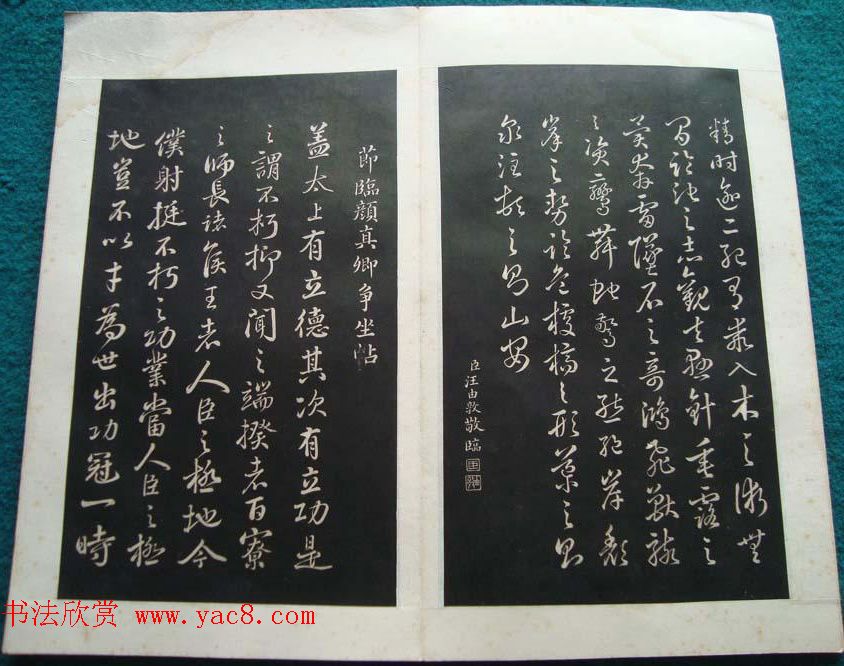 精時逾二紀有乖入木之術無
間臨池之志觀夫懸針垂露之
異奔雷墜石之奇鴻飛獸駭
之資鸞舞蛇驚之態絕岸頹
峯之勢臨危據槁之形導之則
泉注頓之則山安
臣汪由敦敬臨
節臨顏真卿爭坐帖
蓋太上有立德其次有立功是
之謂不朽抑又聞之端揆者百寮
之師長諸侯王者人臣之極地今
僕射挺不朽之功業當人臣之極
地豈不以才為世出功冠一時
书法欣赏 www.yac8.com